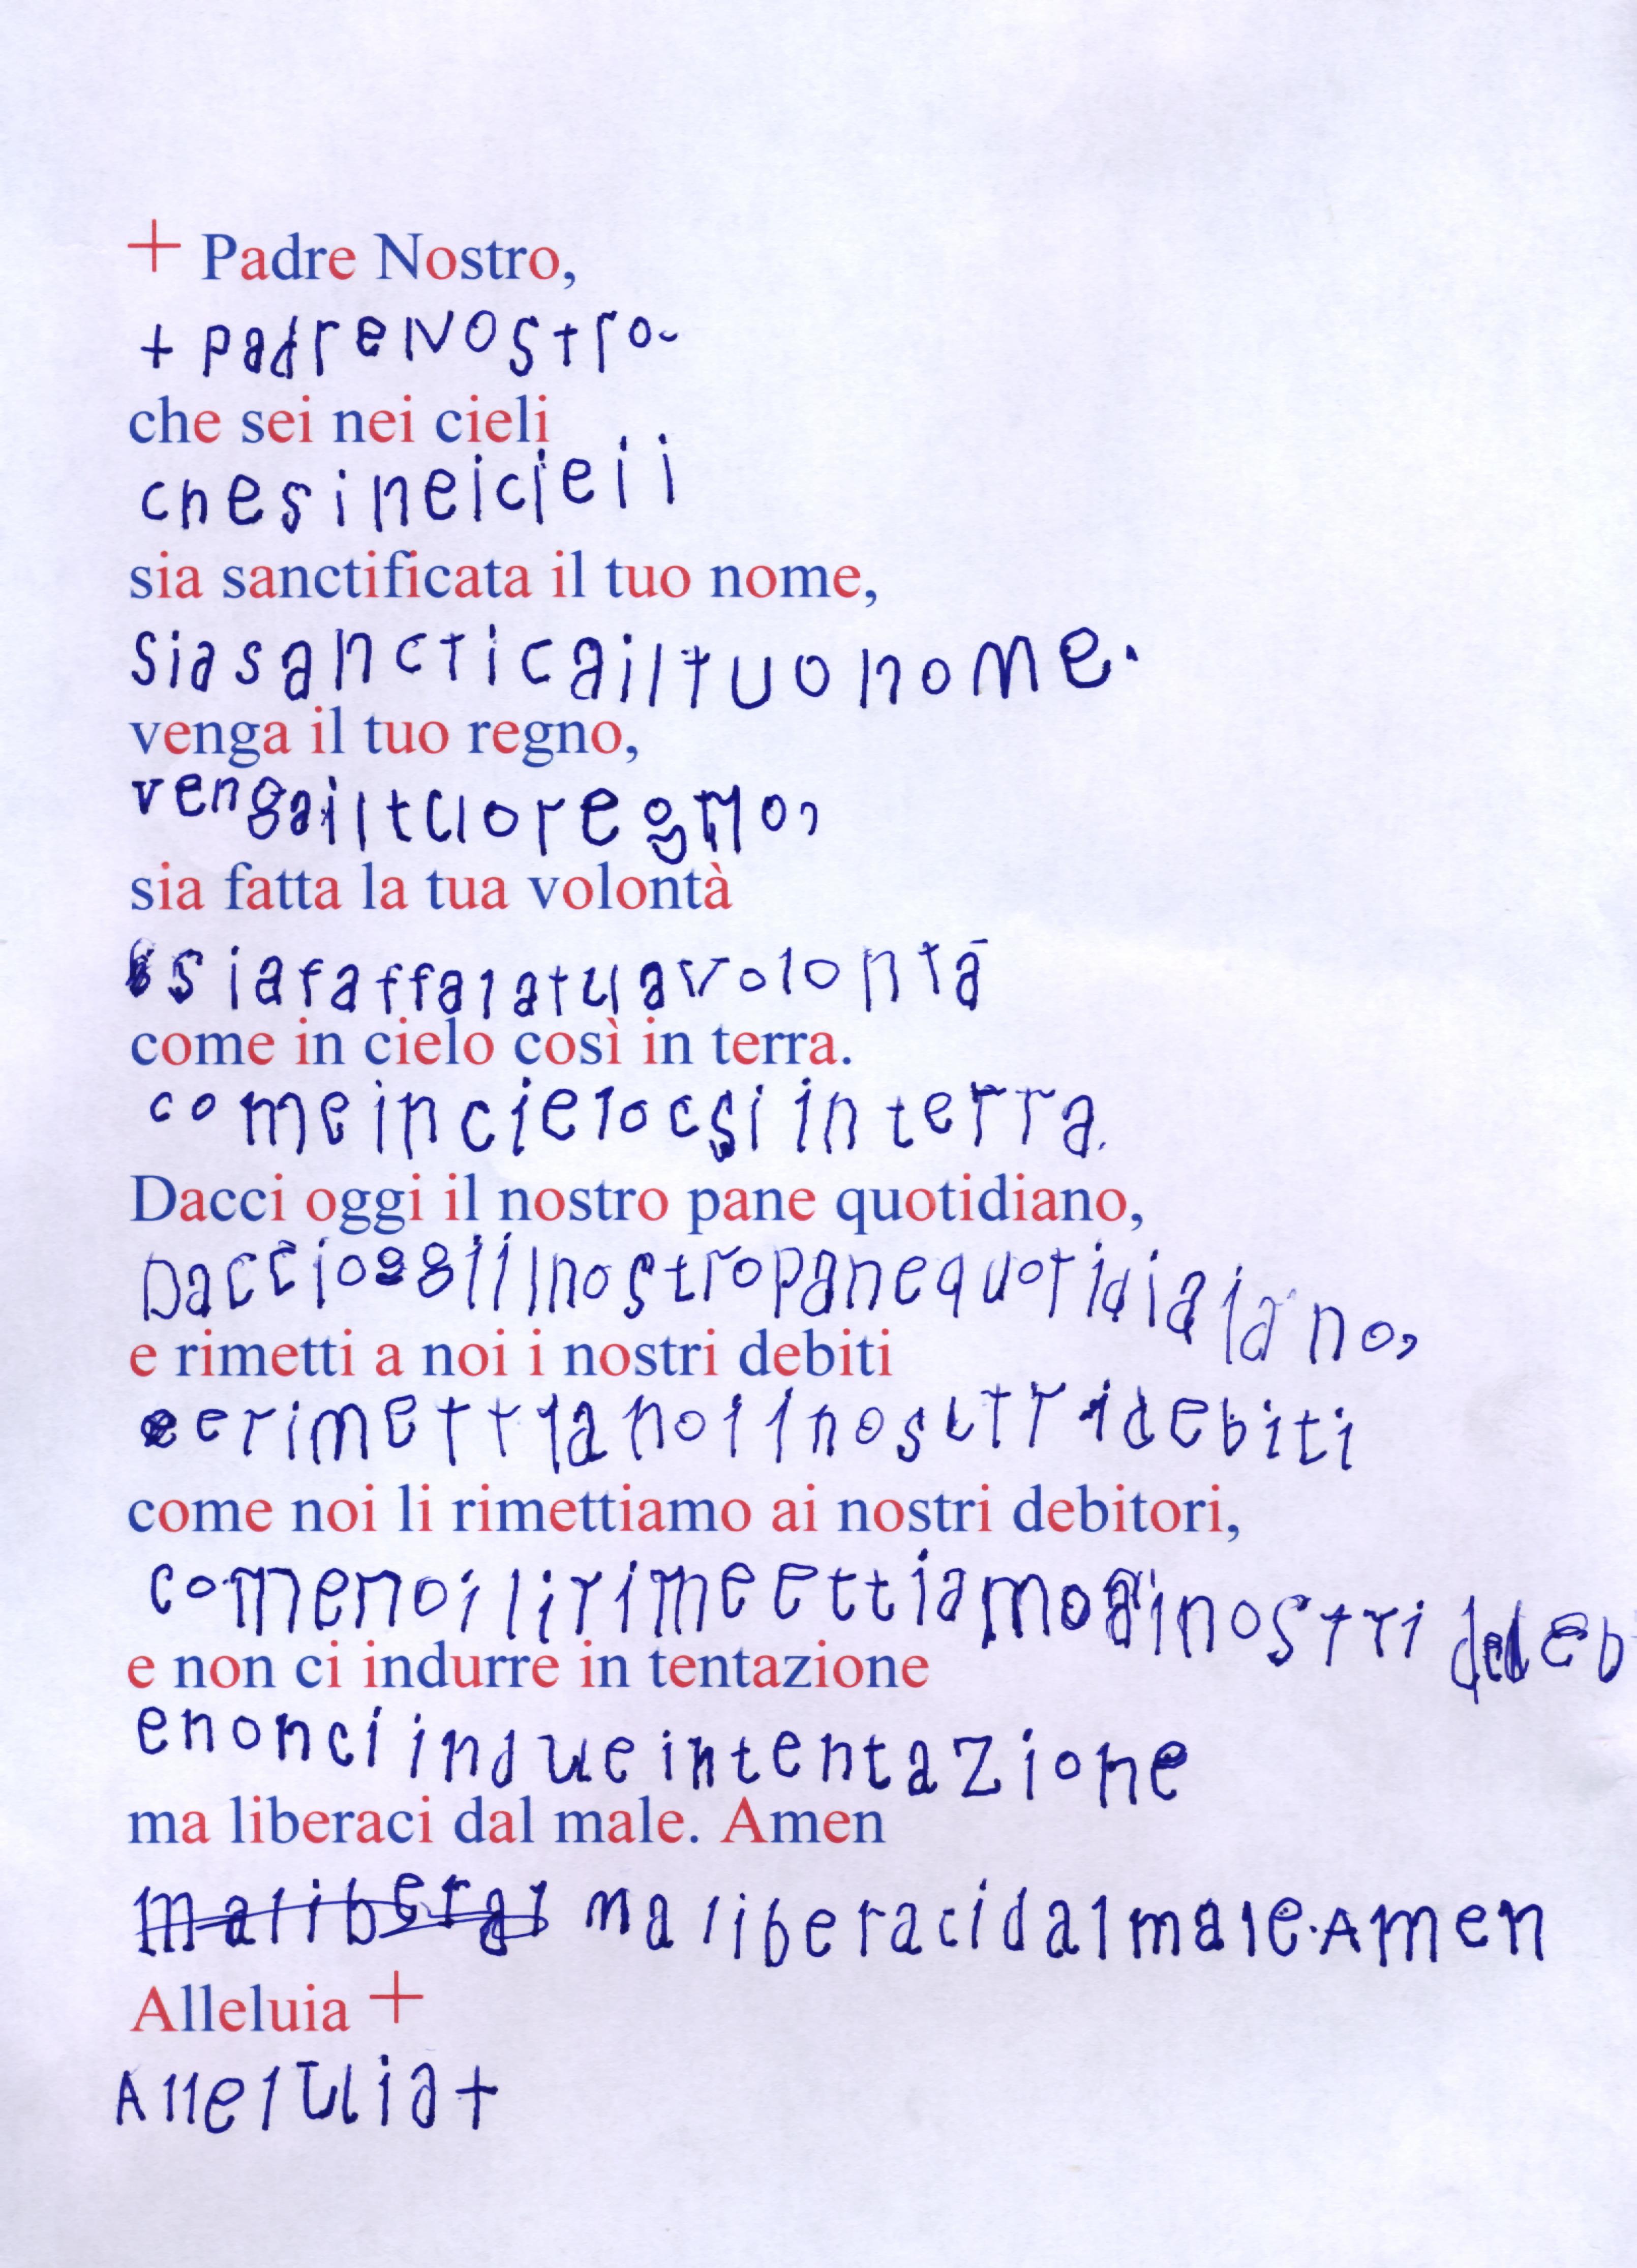 + Padre Nostro,
+ PadreNostro-
che sei nei cieli
chesineicieii
sia sanctificata il tuo nome,
siasancticailtuonome.
venga il tuo regno,
vengailtuoregno,
sia fatta la tua volontà
siafaffalatuavolontà
come in cielo così in terra.
comeincielocsi in terra.
Dacci oggi il nostro pane quotidiano,
Daccioggiilnostropanequotidiaiano,
e rimetti a noi i nostri debiti
erimettianoiinosttridebiti
come noi li rimettiamo ai nostri debitori,
comenoilirimeettiamoainostri deb
e non ci indurre in tentazione
enonci indue intentazione
ma liberaci dal male. Amen
maliberal maliberacidalmale.Amen
Alleluia +
Alleluia+